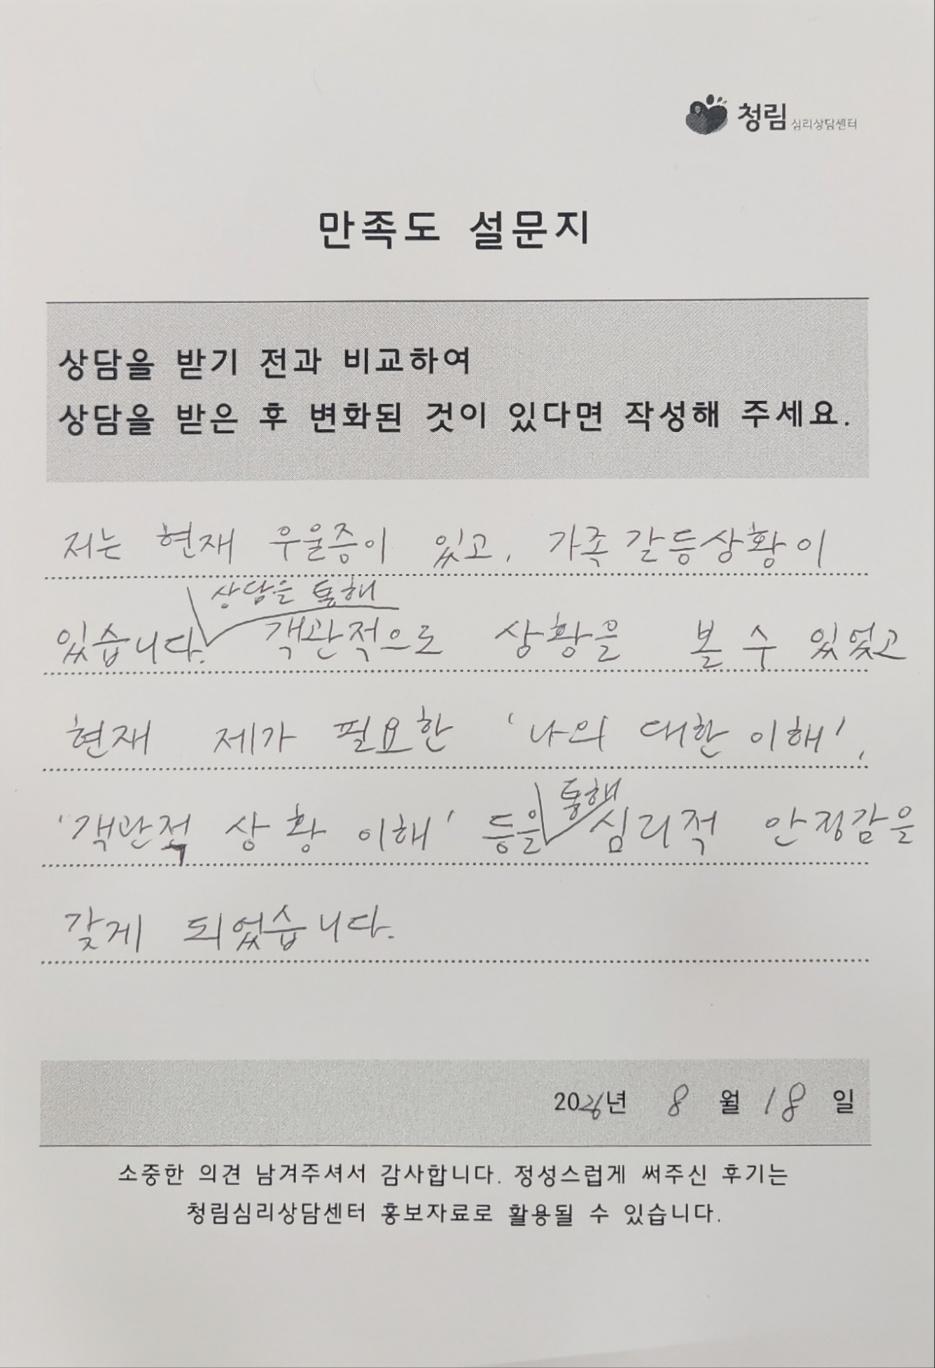 청림 심리상담센터
만족도 설문지
상담을 받기 전과 비교하여
상담을 받은 후 변화된 것이 있다면 작성해 주세요.
저는 현재 우울증이 있고, 가족 갈등상황이
상담을 통해
있습니다. 객관적으로 상황을 볼 수 있었고
현재 제가 필요한 '나의 대한 이해',
통해
'객관적 상황 이해' 등을 심리적 안정감을
갖게 되었습니다.
2026년 8월 18일
소중한 의견 남겨주셔서 감사합니다. 정성스럽게 써주신 후기는
청림심리상담센터 홍보자료로 활용될 수 있습니다.